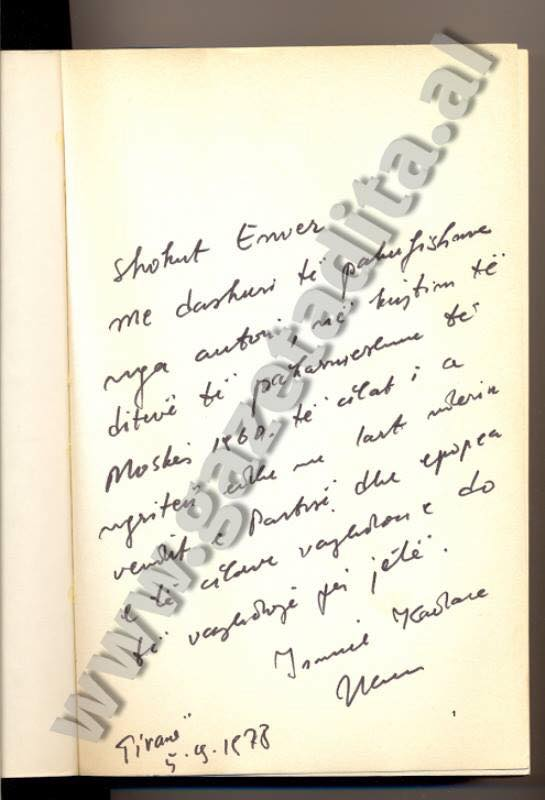 Shokut Enver
me dashuri të pakufishme
nga autori, në kujtim të
ditëve të paharrueshme të
Moskës 1960. të cilat i a
ngritën edhe më lart nderin
vendit e Partisë dhe epopea
e të cilave vazhdon e do
të vazhdojë për jetë.
Ismail Kadare
Tiranë
5.9.1978
www.gazetadita.al